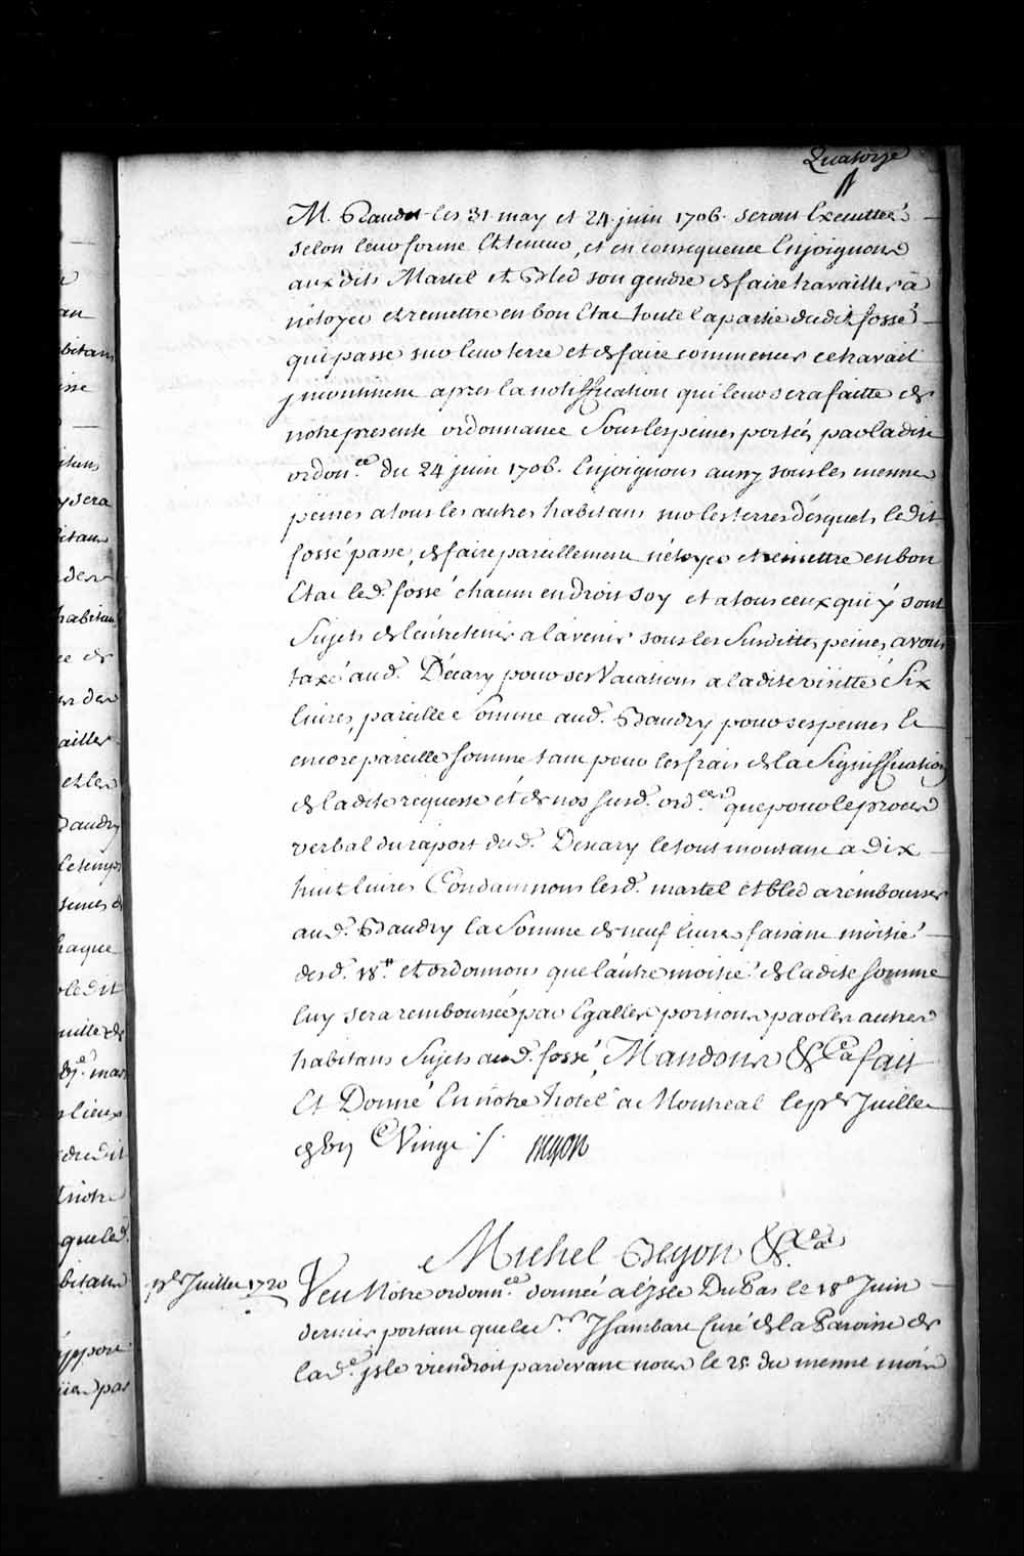 Quatorze
M. Raudot les 31. may et 24. juin 1706. seront Executtées
selon leur forme Et teneur, et en consequence Enjoignons
aux dits Martel et Bled son gendre de faire travailler à
nétoyer et remettre en bon Etat toute la partie dudit fossé
qui passe sur leur terre et de faire commencer ce travail
jncontinent apres la notiffication qui leur sera faitte de
notre presente ordonnance sous les peines portées par la dite
ordon.ce du 24 juin 1706. Enjoignons aussy sous les mesmes
peines a tous les autres habitans sur les terres désquels ledit
fossé passe, de faire pareillement nétoyer et remettre en bon
Etat led. fossé chacun en droit soy et a tous ceux qui y sont
Sujets de l'entretenir a l'avenir sous les Susdittes peines, avons
taxé aud. Décary pour ses Vacations a la dite visitte Six
livres, pareille Somme aud. Baudry pour ses peines Et
encore pareille somme tant pour les frais de la Signiffication
de la dite requeste et de nos susd. ord.ces que pour le procès
verbal du raport dud. Decary le tout montant a Dix
huit livres Condamnons lesd. martel et bled a rembourser
aud. Baudry la Somme de neuf livres faisant moitié
desd. 18.tt et ordonnons que l'autre moitié de la dite somme
luy sera remboursée par Egalles portions par les autres
habitans Sujets aud. fossé, Mandons &.ca fait
Et Donné En notre hotel a Montreal le p.er Juillet
Vingt ./. Begon
Michel Begon &.ca
p.er Juillet 1720
Veu Notre ordonn.ce donnée a l'Isle Du Pas le 18.e Juin
dernier portant que le s.r Jsambart Curé de la Paroisse de
lad.e jsle viendroit pardevant nous le 25. du mesme mois
an
bitans
itans
y sera
itans
habitans
e de
ailler
et les
Baudry
le temps
haque
ledit
lieux
dudit
notre
que led.
bitans
par